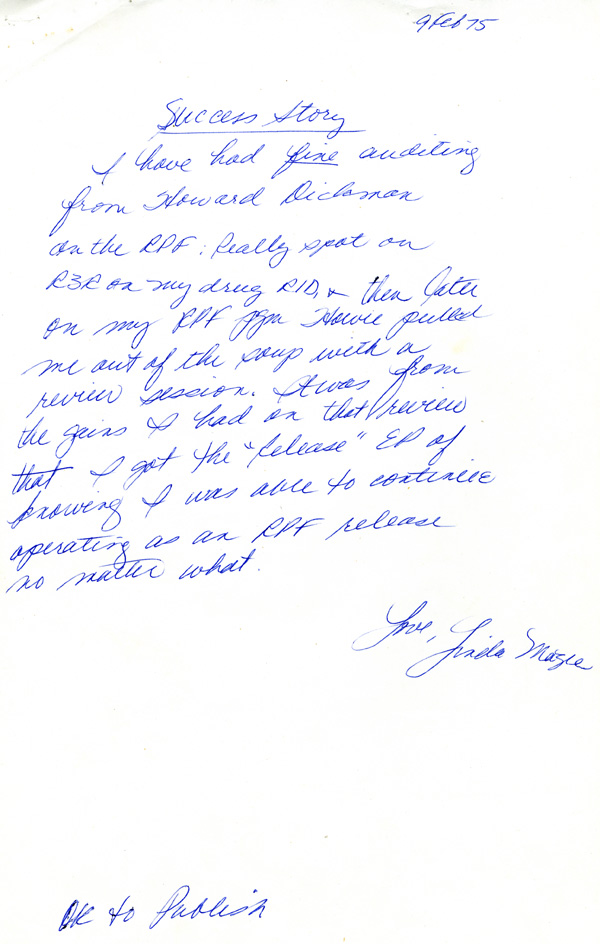 9 Feb 75
Success Story
I have had fine auditing
from Howard Dickman
on the RPF. Really spot on
R3R on my drug RID, & then later
on my RPF pgm Howie pulled
me out of the soup with a
review session. It was from
the gains I had on that review
that I got the "Release" EP of
knowing I was able to continue
operating as an RPF release
no matter what.
Love, Linda
OK to Publish